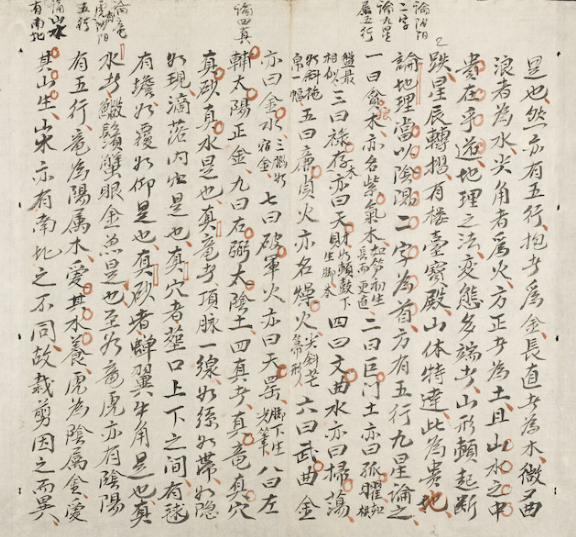 論阴阳二字
論九星属五行
是也然亦有五行抱者為金長直者為木微曲
浪者為水尖角者為火方正者為土且山水之中
貴在乎遊地理之法变態多端者山形頼起断
跌星辰轉摺有楼臺寶殿山体特達此為貴地
論地理當以陰陽二字為首方有五行九星論之
一曰貪狼木亦名紫氣木如笋初生長而更直二曰巨门土亦曰孤曜
相似三曰祿存木亦曰天財如頓鼓下生脚四曰文曲水亦曰掃蕩
如斜拖帛一幅五曰廉貞火亦名燥火尖斜六曰武曲金
亦曰金水七曰破軍火亦曰天罡脚下生八曰左
論四真
輔太陽正金九曰右弼太陰土四真者真竜真穴
真砂真水是也真竜者頂脉一線如絲如帶如隐
如現滴落内是也真穴者葬口上下之间有毬
有擔如覆如仰是也真砂者蟬翼牛角是也真
論竜虎阴阳五行
水者鬚蟹眼金魚是也至若竜虎亦有陰陽
有五行竜為陽属木愛其水養虎為陰属金愛
論山水有南北
其山生山水亦有南北之不同故裁剪因之而異